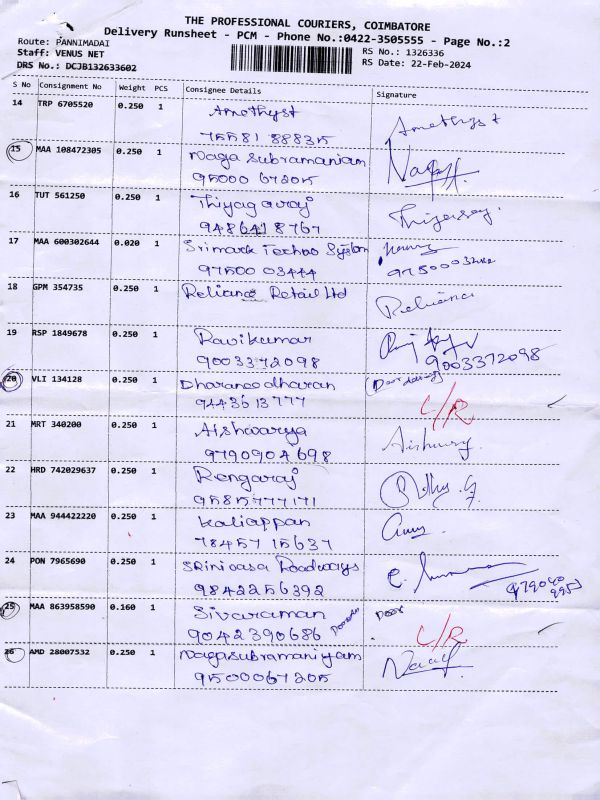 THE PROFESSIONAL COURIERS, COIMBATORE
Delivery Runsheet - PCM - Phone No.:0422-3505555 - Page No.:2
Route: PANNIMADAI
Staff: VENUS NET
DRS No.: DCJB132633602
RS No.: 1326336
RS Date: 22-Feb-2024
S No Consignment No Weight PCS Consignee Details Signature
14 TRP 6705520 0.250 1 Amethyst Amethyst
75581 88835
15 MAA 108472305 0.250 1 Naga Subramaniam
95000 67205
16 TUT 561250 0.250 1 Thiyagaraj
9486418767
17 MAA 600302644 0.020 1 Srimark Techno System
97500 03444
18 GPM 354735 0.250 1 Reliance Retail Ltd Reliance
19 RSP 1849678 0.250 1 Ravikumar
9003372098 9003372098
20 VLI 134128 0.250 1 Dharaneedharan
9443613777 L/R
21 MRT 340200 0.250 1 Aishwarya
9790904698
22 HRD 742029637 0.250 1 Rengaraj
9585777171
23 MAA 944422220 0.250 1 Kaliappan
78457 15637
24 PON 7965690 0.250 1 Srinivasa Roadways
9842256392
25 MAA 863958590 0.160 1 Sivaraman Door
9042390686 L/R
26 AMD 28007532 0.250 1 Nagasubramaniyam
9500067205